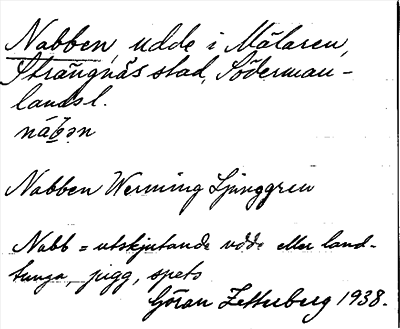 Nabben, udde i Mälaren,
Strängnäs stad, Söderman-
lands l.
nábən
Nabben Werming Ljunggren
Nabb = utskjutande udde eller land-
tunga, pigg, spets
Göran Zetterberg 1938.